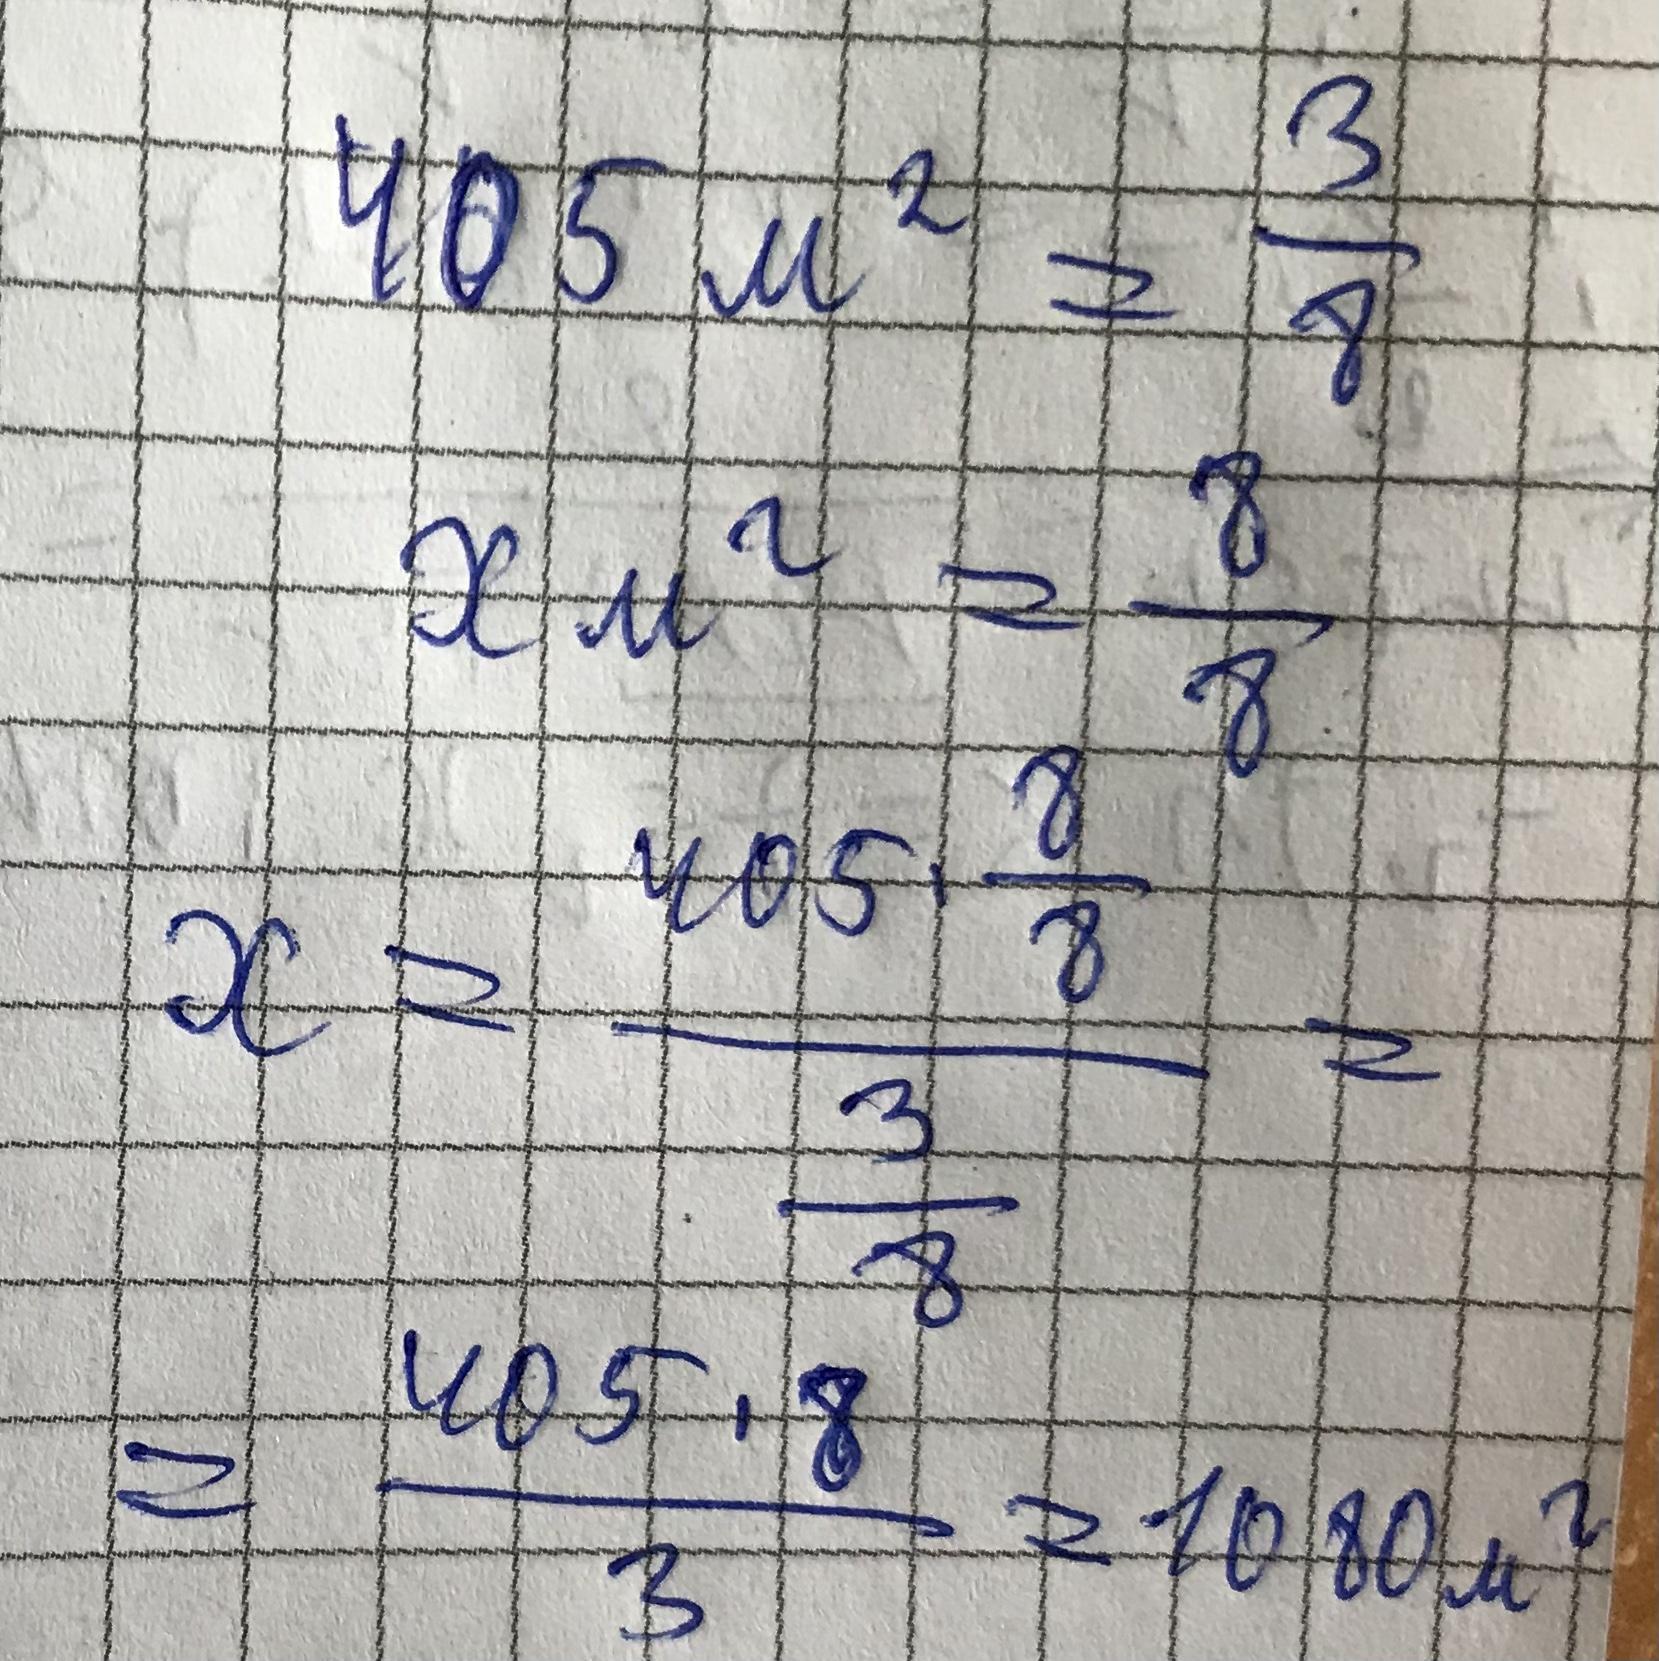 405 м² = 3/8
x м² = 8/8
x = (405 · 8/8) / (3/8) =
= (405 · 8) / 3 = 1080 м²